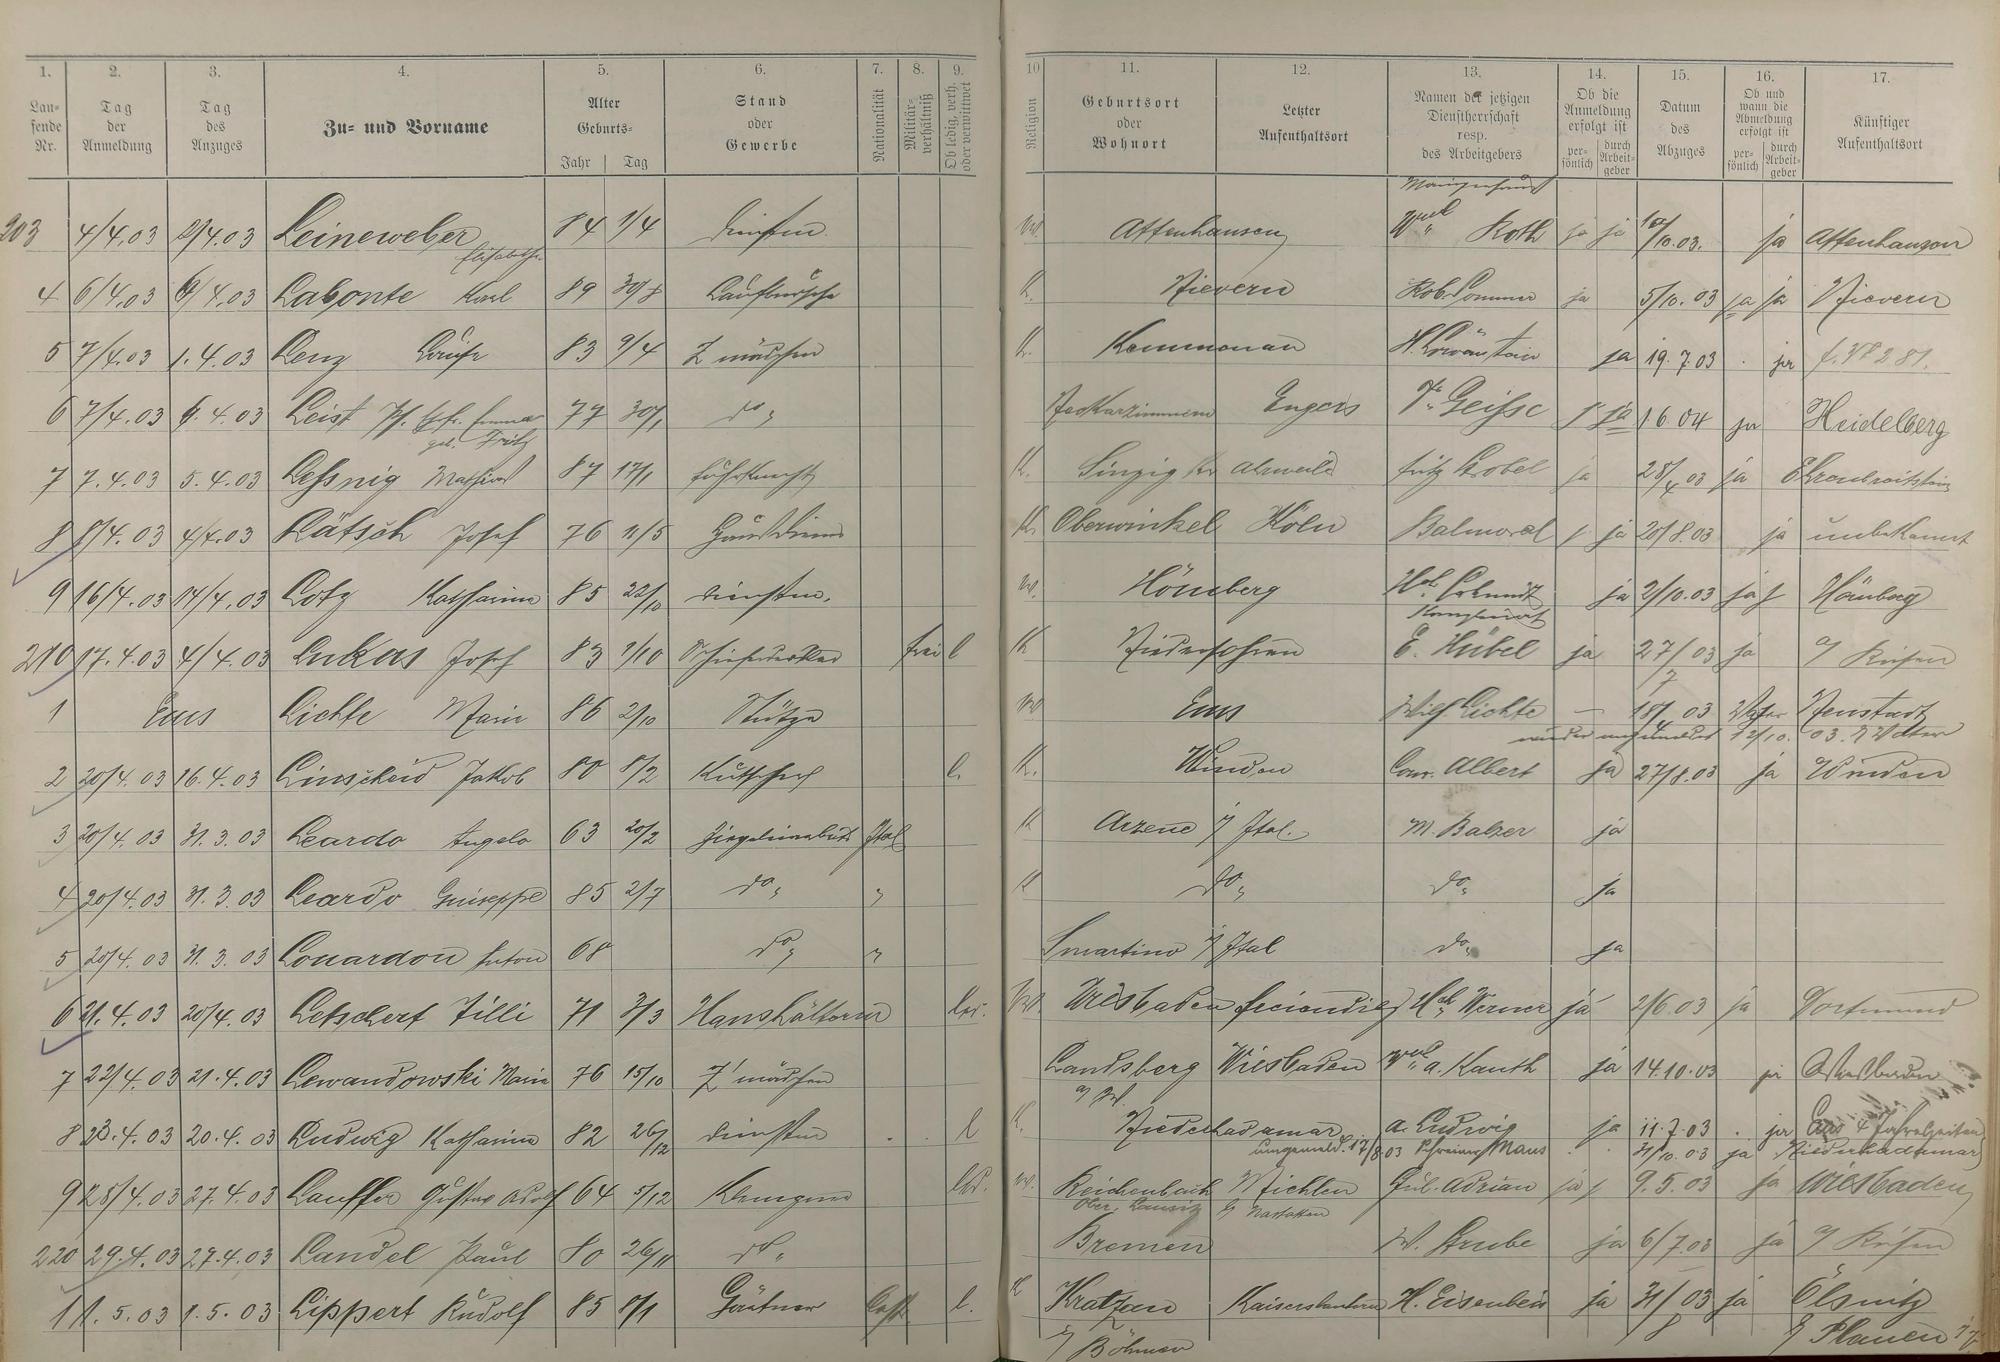 1. 2. 3. 4. 5. 6. 7. 8. 9. 10 11. 12. 13. 14. 15. 16. 17.
Lau-
fende
Nr.
Tag
der
Anmeldung
Tag
des
Anzuges
Zu- und Vorname
Alter
Geburts-
Jahr Tag
Stand
oder
Gewerbe
Nationalität
Militär-
verhältniß
Ob ledig, verh.
oder verwittwet
Religion
Geburtsort
oder
Wohnort
Letzter
Aufenthaltsort
Namen der jetzigen
Dienstherrschaft
resp.
des Arbeitgebers
Ob die
Anmeldung
erfolgt ist
per-
sönlich
durch
Arbeit-
geber
Datum
des
Abzuges
Ob und
wann die
Abmeldung
erfolgt ist
per-
sönlich
durch
Arbeit-
geber
Künftiger
Aufenthaltsort
203 4/4.03 2/4.03 Leineweber 84 1/4 Attenhausen Roth ja ja /10.03. ja Attenhausen
Elisabeth
4 6/4.03 /4.03 Labonte Karl 89 30/8 Laufbursche K. Nievern Rob. Sommer ja 5/10.03 ja ja Nievern
5 7/4.03 1.4.03 Lenz Louise 83 9/4 Z mädchen K. Kemmenau H. Löwenstein ja 19.7.03 . ja
6 7/4.03 .4.03 Leist Emma 77 30/1 do " Neckarzimmern Engers Geisse ja 1 6 04 ja Heidelberg
geb. Fritz
7 7.4.03 5.4.03 Lessnig Mathias 87 17/1 Fuhrknecht K. Sinzig Kr Ahrweiler Fritz Strobel ja 28/4 03 ja Ehrenbreitstein
8 8/4.03 4/4.03 Lätsch Josef 76 11/5 Hausdiener K. Oberwinkel Köln Balmoral ja 20/8.03 ja unbekannt
9 16/4.03 14/4.03 Lotz Katharina 85 22/10 ev. Hömberg Hch. Schmidt ja 2/10.03 ja Hömberg
210 17.4.03 4/4.03 Lukas Josef 83 9/10 Schieferdecker frei l K E. Hübel ja 27/7 03 ja a/ Reisen
1 Ems Lichte Marie 86 2/10 Stütze ev Ems Wilh Lichte — 18/4 03 Vater Neustadt
wieder angemeldet 12/10. 03.
2 20/4.03 16.4.03 Linscheid Jakob 80 8/2 Kutscher l. K. Winden Conr. Albert ja 27/8.03 ja Winden
3 20/4.03 31.3.03 Leardo Angelo 63 20/2 Ziegeleiarbeiter Ital K Arzene i/ Ital. M. Balzer ja
4 20/4.03 31.3.03 Leardo Guiseppe 85 2/7 do " " K do " do " ja
5 20/4.03 31.3.03 Louardon Anton 68 do " " Smartino i/ Ital do " ja
6 21.4.03 20/4.03 Letschert Tilli 71 3/3 Haushälterin led. ev. Wiesbaden Hch. Werner ja 2/6.03 ja Dortmund
7 22/4.03 21.4.03 Lewandowski Marie 76 15/10 Z' mädchen Landsberg Wiesbaden a. Kauth ja 14.10.03 ja Wiesbaden
a/ W.
8 23.4.03 20.4.03 Ludwig Katharina 82 26/12 . . l K. Niederhadamar a. Ludwig ja 11.7.03 . ja Ems 4 Jahreszeiten
umgemeld. 17/8.03 Schreiner Maus 31/10.03 ja Niederhadamar
9 28/4.03 27.4.03 Lauffer Gustav Adolf 64 5/12 Klempner led. ev. Reichenbach Miehlen Jul. Adrian ja 9.5.03 ja Wiesbaden
Ober Lausitz b/ Nastätten
220 29.4.03 27.4.03 Landel Paul 80 26/11 do " Bremen W. Strube ja 6/7.03 ja a/ Reisen
1 1.5.03 1.5.03 Lippert Rudolf 85 8/1 Gärtner Oestr. l. K Kratzau Kaiserslautern H. Eisenbeis ja 31/8 03 ja Ölsnitz
i/ Böhmen b/ Plauen i/V.